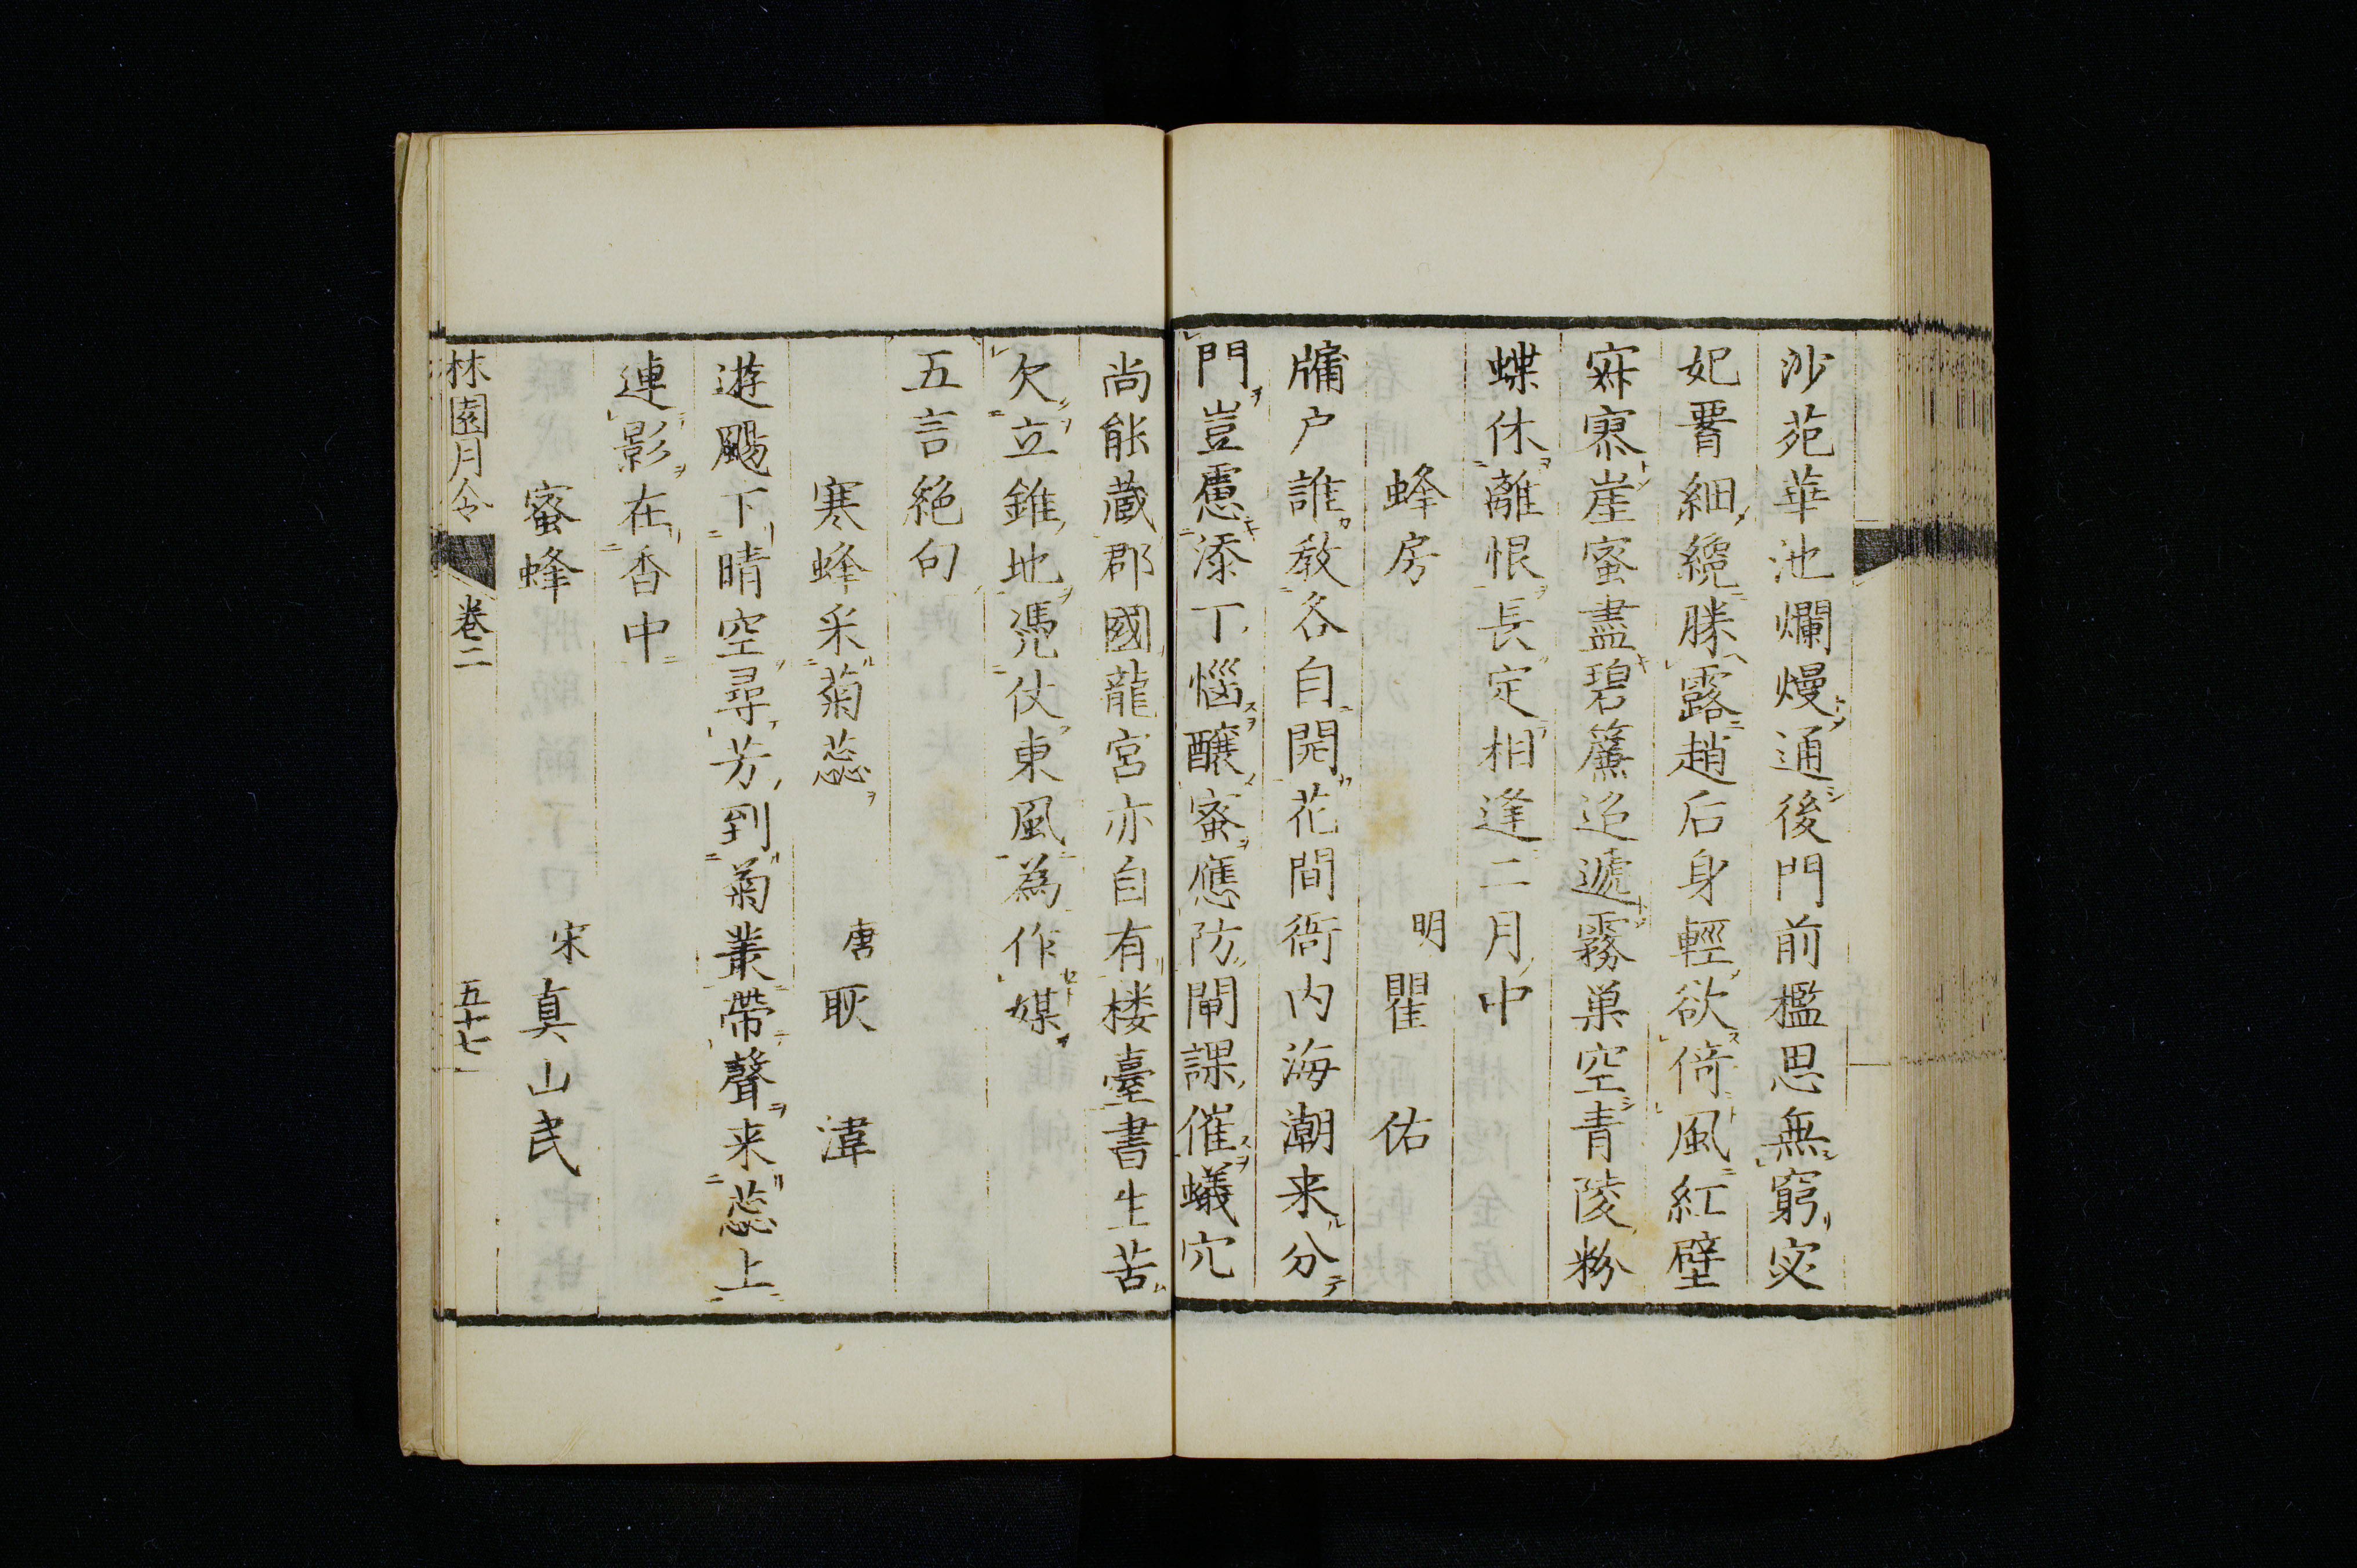 沙苑華池爛熳通後門前檻思無窮宓
妃腰細纔勝露趙后身輕欲倚風紅壁
寂寞崖蜜盡碧簷迢遞霧巢空青陵粉
蝶休離恨長定相逢二月中
蜂房 明 瞿佑
牖户誰教各自開花間衙内海潮来分
門豈慮添丁惱釀蜜應防閘課催蟻穴
尚能蔵郡國龍宮亦自有楼臺書生苦
欠立錐地憑仗東風為作媒
五言絶句
寒蜂采菊蕊 唐 耿湋
遊颺下晴空尋芳到菊叢帶聲来蕊上
連影在香中
蜜蜂 宋 真山民
林園月令 卷二 五十七